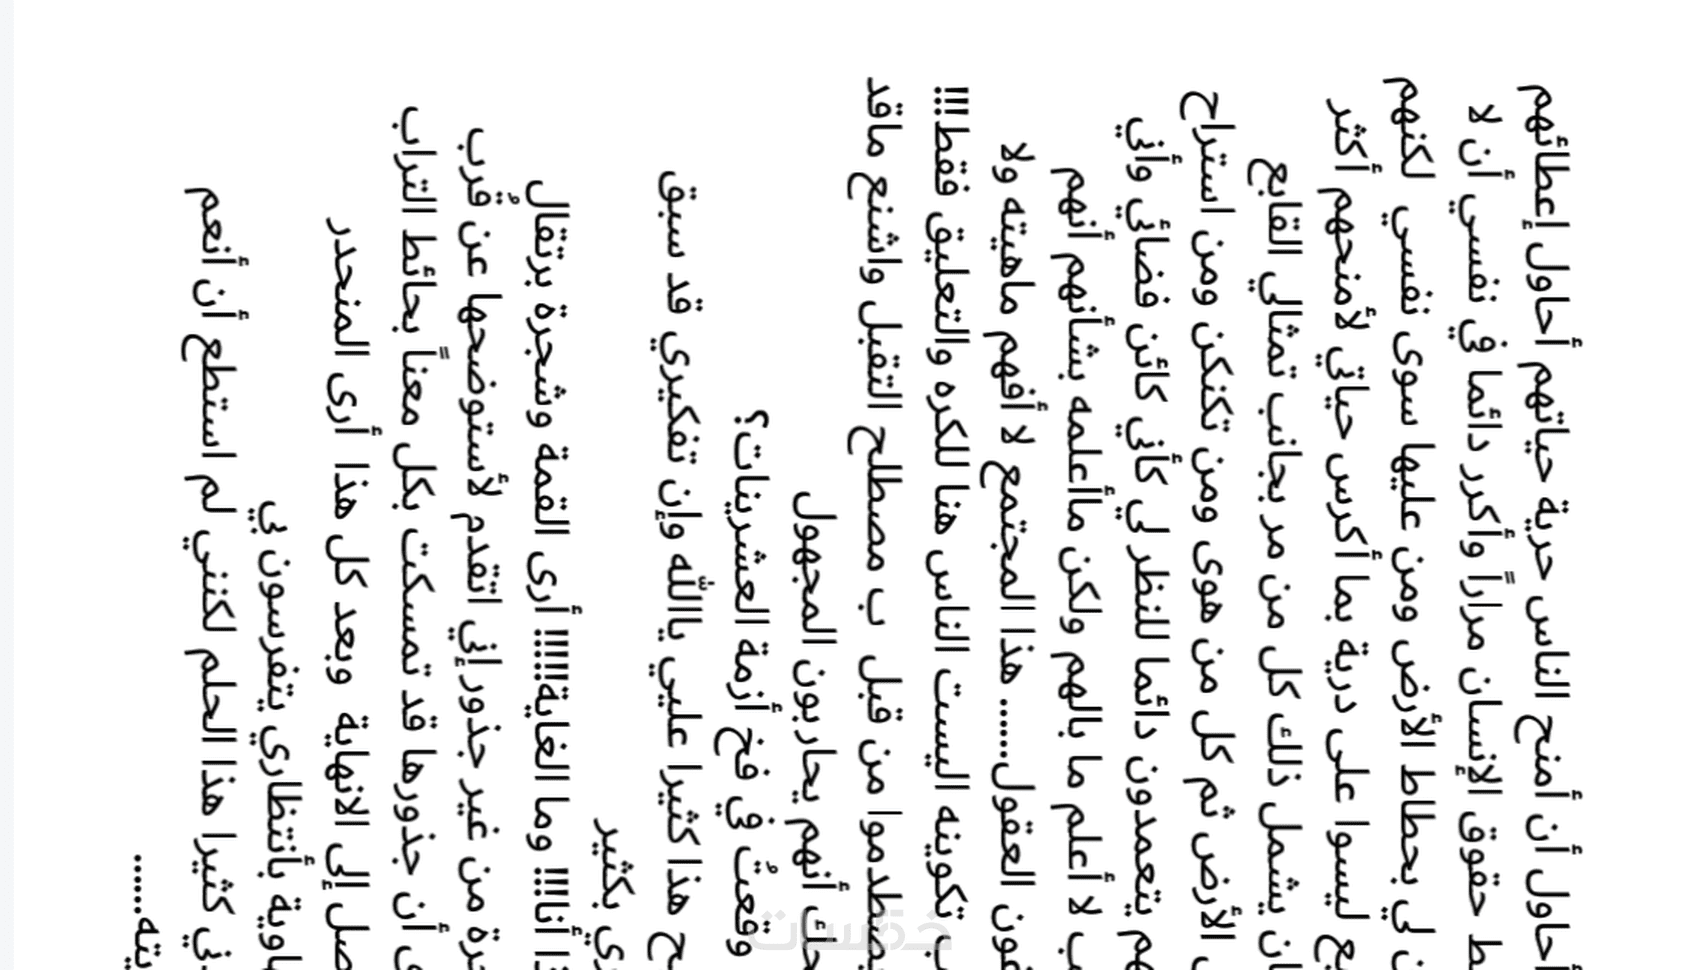 أحاول أن أمنح الناس حرية حياتهم أحاول إعطائهم
حقوق الإنسان مراراً وأكرر دائما في نفسي أن لا
لي بحطاط الأرض ومن عليها سوى نفسي لكنهم
ليسوا على درية بما أكرس حياتي لأمنحهم أكثر
يشمل ذلك كل من مر بجانب تمثالي القابع
الأرض ثم كل من هوى ومن تكنكن ومن استراح
يتعمدون دائما للنظر لي كأني كائن فضائي وأني
لا أعلم ما بالهم ولكن مأاعلمه بشأنهم أنهم
العقول...... هذا المجتمع لا أفهم ماهيته ولا
تكوينه اليست الناس هنا للكره والتعليق فقط!!!
يصطدموا من قبل ب مصطلح التقبل واشنع ماقد
أنهم يحاربون المجهول
وقعتُ في فخ أزمة العشرينات؟
هذا كثيرا عليي ياالله وإن تفكيري قد سبق
بكثير
أنا!!! وما الغاية!!!!! أرى القمة وشجرة برتقال
من غير جذور إني اتقدم لأستوضحها عن قُرب
أن جذورها قد تمسكت بكل معناً بحائط التراب
إلى الانهاية وبعد كل هذا أرى المنحدر
بأنتظاري يتفرسون بي
كثيرا هذا الحلم لكنني لم استطع أن أنعم
......
خمسات